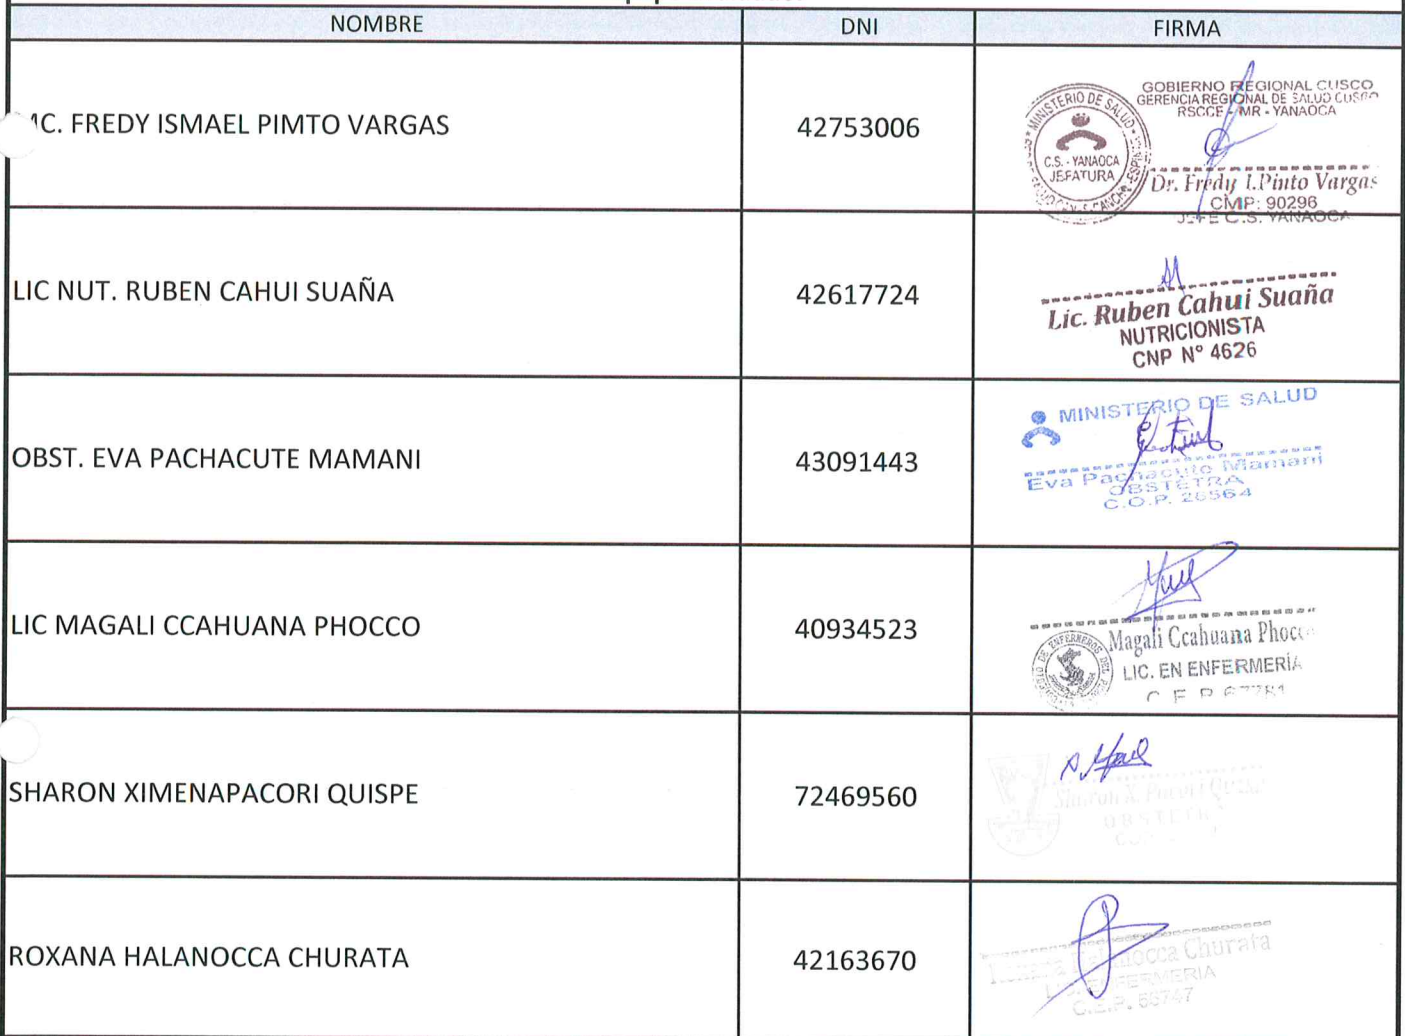 NOMBRE DNI FIRMA
MC. FREDY ISMAEL PIMTO VARGAS 42753006
MINISTERIO DE SALUD
C.S. - YANAOCA
JEFATURA
GOBIERNO REGIONAL CUSCO
GERENCIA REGIONAL DE SALUD CUSCO
RSCCE - MR - YANAOCA
Dr. Fredy I.Pinto Vargas
CMP: 90296
JEFE C.S. YANAOCA
LIC NUT. RUBEN CAHUI SUAÑA 42617724
Lic. Ruben Cahui Suaña
NUTRICIONISTA
CNP N° 4626
OBST. EVA PACHACUTE MAMANI 43091443
MINISTERIO DE SALUD
Eva Pachacute Mamani
OBSTETRA
C.O.P. 26564
LIC MAGALI CCAHUANA PHOCCO 40934523
Magali Ccahuana Phocco
LIC. EN ENFERMERÍA
C.E.P. 67781
SHARON XIMENAPACORI QUISPE 72469560
Sharon X. Pacori Quispe
OBSTETRA
ROXANA HALANOCCA CHURATA 42163670
Roxana Halanocca Churata
ENFERMERIA
C.E.P.